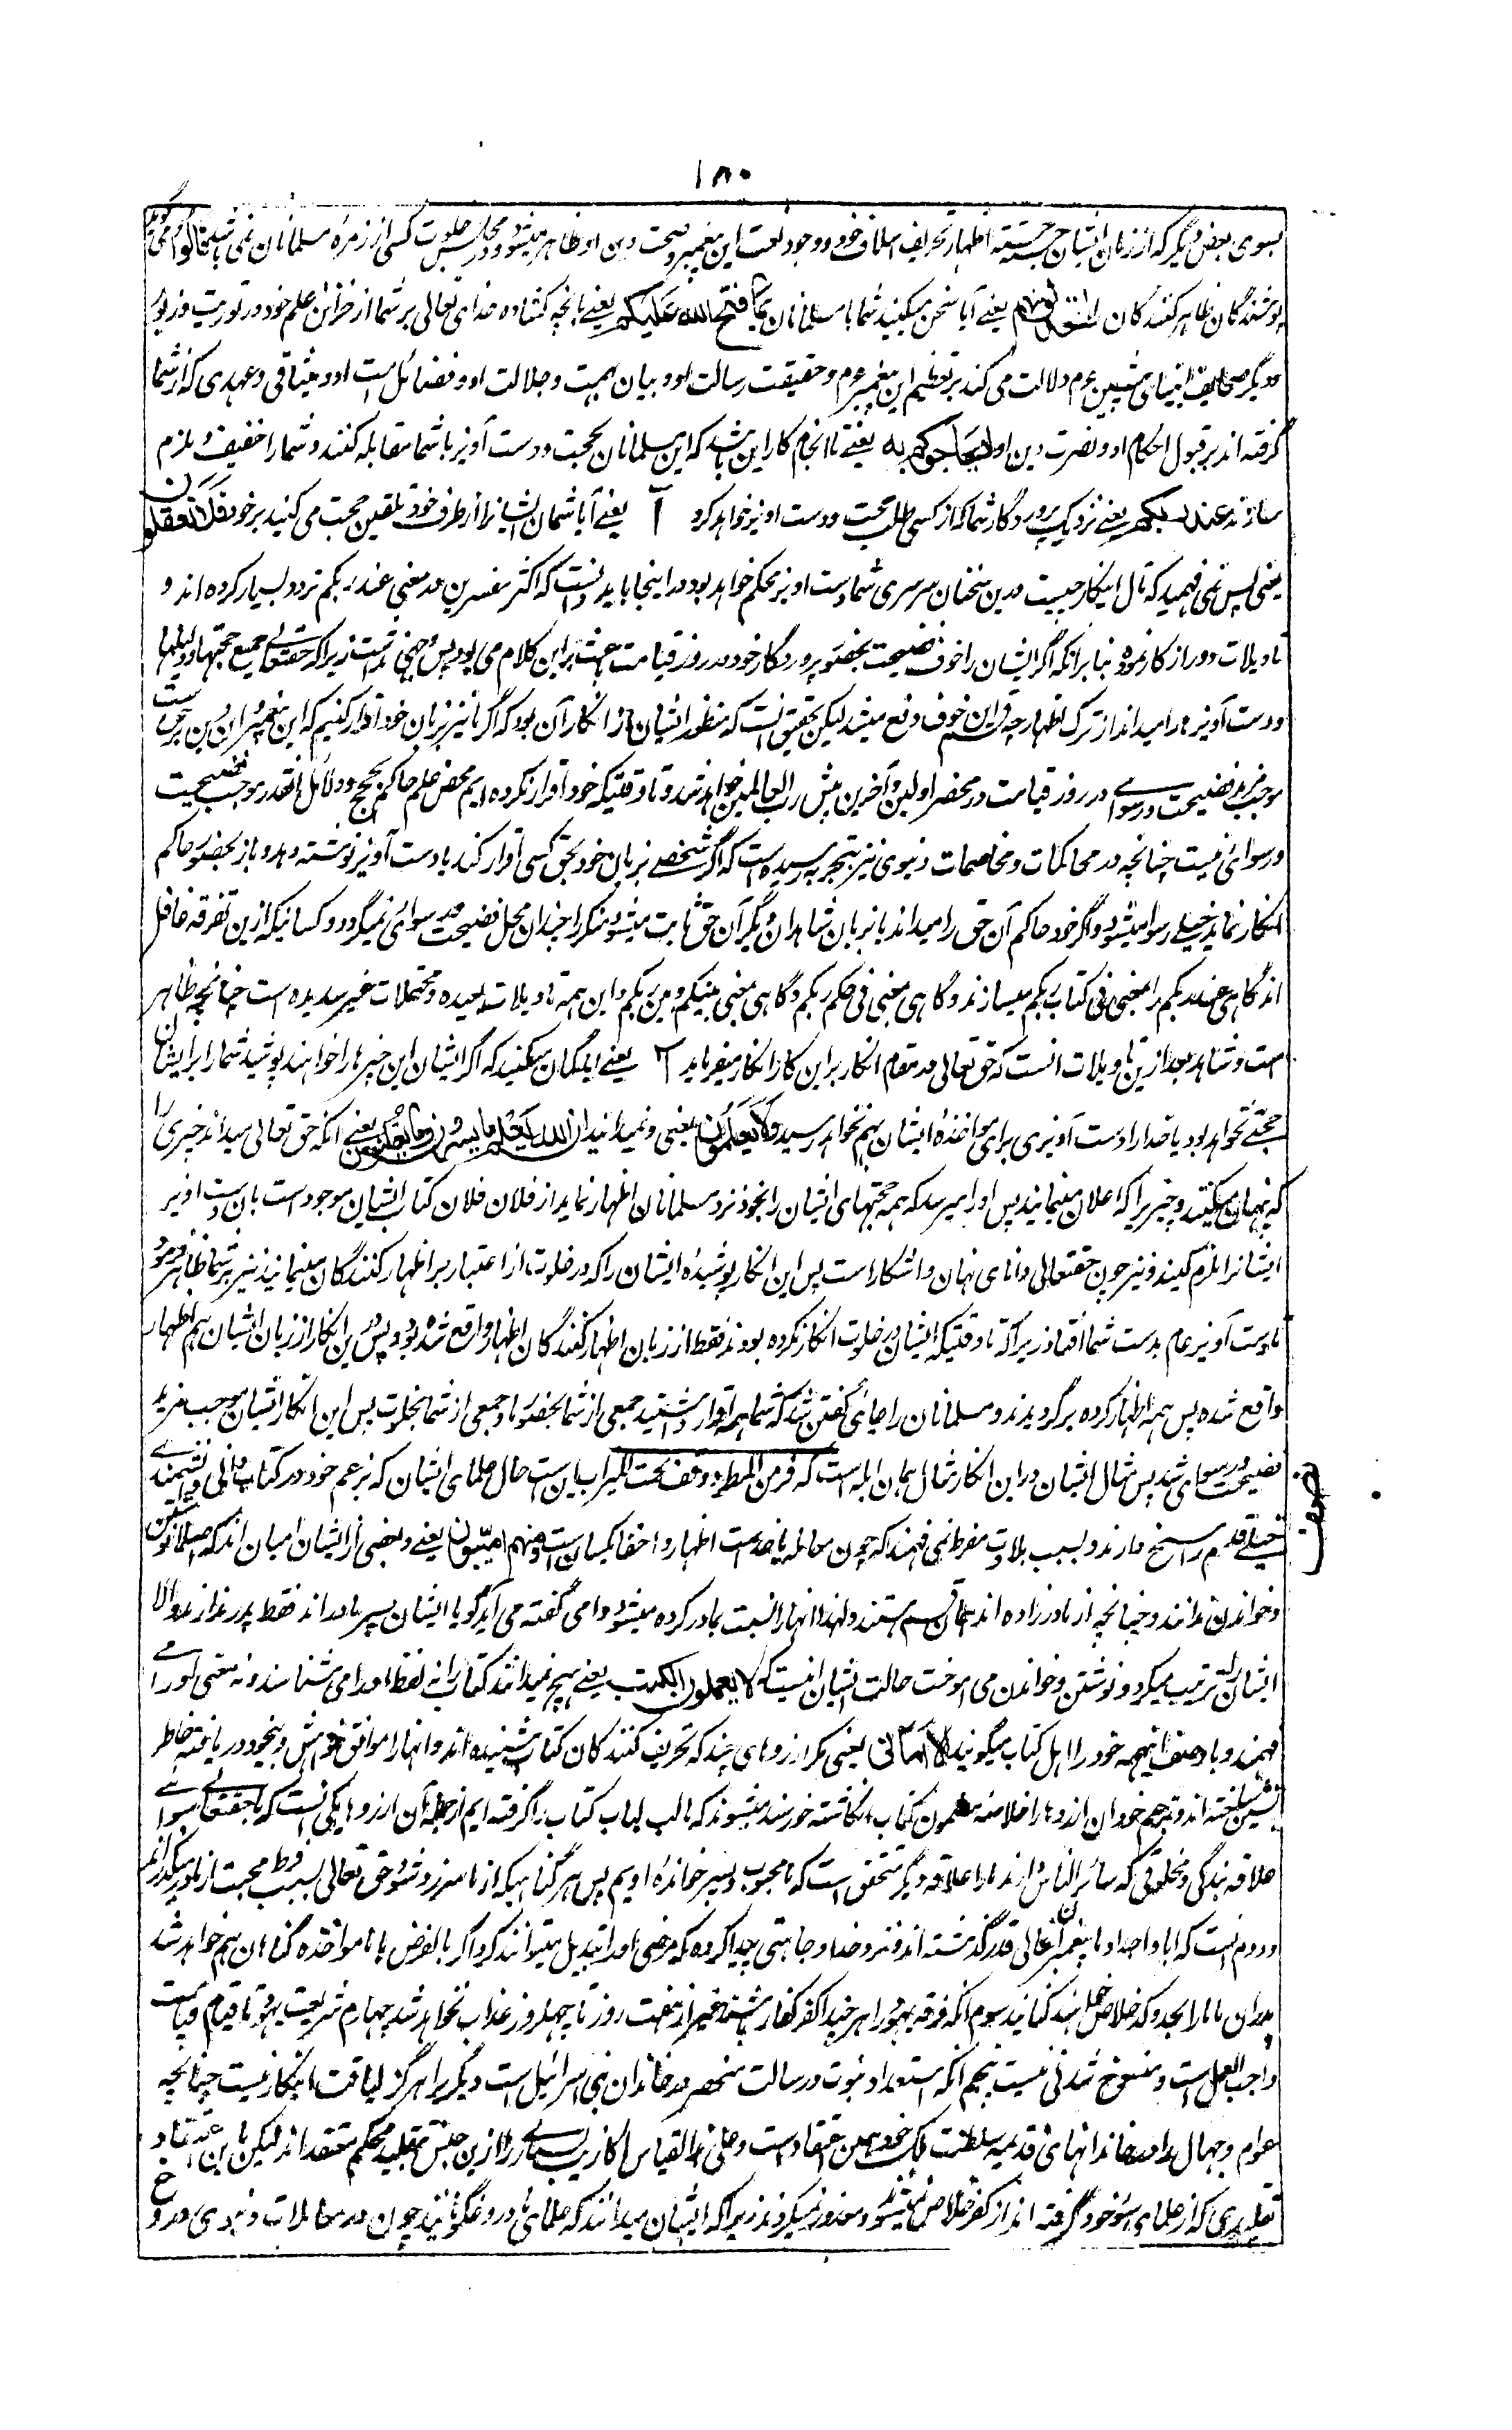 ۱۸۰
بسوی بعض دیگر که از زبان ایشان جسته جسته اظهار تحریف اسلاف خود و وجود نعت این پیغمبر و صحت دین او ظاهر میشود و در مجلس خلوت کسی از زمرهٔ مسلمانان نمی باشد قالوا می گویند
پوشندگان ظاهر کنندگان را اتحدثونهم یعنے آیا سخن میکنید شما با مسلمانان بما فتح الله علیکم یعنے بانچه کشاده خدای تعالی بر شما از خزائن علم خود در توریت و زبور
و دیگر صحایف انبیای پیشین عم دلالت می کند بر تعظیم این پیغمبر عم و حقیقت رسالت او و بیان هیبت و جلالت او و فضائل امت او و میثاقی و عهدی که از شما
گرفته اند بر قبول احکام او و نصرت دین او لیحاجوکم به یعنے تا انجام کار این باشد که این مسلمانان بحجت و دست آویز با شما مقابله کنند و شما را خفیف و ملزم
سازند عند ربکم یعنے نزدیک پروردگار شما که از کسی طلب حجت و دست اویز خواهد کرد آ یعنے آیا شمایان ایشانرا از طرف خود تلقین حجت می کنید بر خود افلا تعقلون
یعنی پس نمی فهمید که مآل اینکار چیست و درین سخنان سرسری شما دست اویز محکم خواهد بود و در اینجا باید دانست که اکثر مفسرین در معنی عند ربکم تردد بسیار کرده اند و
تاویلات دور از کار نموده بنا بر انکه اگر ایشان را خوف فضیحت بحضور پروردگار خود در روز قیامت باعث بر این کلام می بود پس وجهی نداشت زیرا که حقتعالی جمیع حجتها و دلیلها
و دست آویز ها را میداند از ترک اظهار چه قسم این خوف دفع میشد لیکن تحقیق انست که منظور ایشان از انکار آن بود که اگر ما نیز بزبان خود اقرار کنیم که این پیغمبر و این دین بر حق است
موجب مزید فضیحت و رسوائے در روز قیامت در محضر اولین و آخرین پیش رب العالمین خواهد شد و تا وقتیکه خود اقرار نکرده ایم محض علم حاکم بحجج و دلائل انقدر موجب فضیحت
و رسوائی نیست چنانچه در محاکمات و مخاصمات دنیوی نیز بتجربه رسیده است که اگر شخصے بزبان خود بحق کسی اقرار کند یا دست آویز نوشته دهد و باز بحضور حاکم
انکار نماید خیلے رسوا میشود و اگر خود حاکم آن حق را میداند یا بزبان شاهدان دیگر آن حق ثابت میشود منکر را چندان محل فضیحت و رسوائی نمیگردد و کسانیکه ازین تفرقه غافل
اند گاهی عند ربکم را بمعنی فی کتاب ربکم میسازند و گاهی بمعنی فی حکم ربکم و گاهی بمعنی بینکم و بین ربکم و این همه تاویلات بعیده و محتملات غیر سدیده است چنانچه ظاهر
است و شاهد بعد ازین تاویلات انست که حق تعالی در مقام انکار بر این کار انکار میفرماید آ یعنے ایا گمان میکنید که اگر ایشان این چیزها را خواهند پوشید شما را بر ایشان
حجتے نخواهد بود یا خدا را دست آویزی برای مواخذهٔ ایشان بهم نخواهد رسید ولا یعلمون یعنی و نمیدانند ان الله یعلم ما یسرون وما یعلنون یعنے انکه حق تعالی میداند چیزی را
که پنهان میکنند و چیزیرا که اعلان مینمایند پس او را میرسد که همه حجتهای ایشان را بخود نزد مسلمانان اظهار نماید از فلان فلان کتاب ایشان موجود است بان دست اویز
ایشانرا ملزم کنید و نیز چون حقتعالی دانای نهان و اشکارا است پس این انکار پوشیدهٔ ایشان را که در خلوت از اعتبار بر اظهار کنندگان مینمایند نیز بر شما ظاهر فرمود
تا دست آویز عام بدست شما افتاد زیرا که تا وقتیکه ایشان در خلوت انکار نکرده بودند فقط از زبان اظهار کنندگان اظهار واقع شده بود و پس درین انکار از زبان ایشان هم اظهار
واقع شده پس همه اظهار کرده برگردیدند و مسلمانان را جای گفتن شد که شما همه اقرار داشتید جمعی از شما بحضور ما و جمعی از شما بخلوت پس این انکار ایشان موجب مزید
فضیحت و رسوائی شد پس مثال ایشان در این انکار مثال همان ابله است که فر من المطر و وقف تحت المیزاب این است حال علمای ایشان که بزعم خود در کتاب دانی و دانشمندے
خیلے قدم راسخ دارند و بسبب بلادت مفرط نمی فهمند که چون معامله با خداست اظهار و اخفا یکسان است ومنهم امیون یعنے و بعضی از ایشان امیان اند که اصلا نوشتن
و خواندن ندانند و چنانچه از مادر زاده اند همان قسم هستند و لهذا انها را نسبت بمادر کرده میشود و امی گفته می آید گویا ایشان پسر مادر اند فقط پدر ندارند و الا
ایشان را تربیت میکرد و نوشتن و خواندن می اموخت حالت ایشان اینست که لا یعلمون الکتب یعنے هیچ نمیدانند کتاب را نه لفظ او را می شناسند و نه معنی او را
فهمند و با وصف اینهمه خود را اهل کتاب میگویند الا امانی یعنی مگر ارزوهای چند که تحریف کنندگان کتاب شنیده اند و انها را موافق خواهش و بخود در یافته خاطر
نشین ساخته اند و بزعم خود ان ارزوها را خلاصه مضمون کتاب انگاشته خورسند میشوند که ما لب لباب کتاب را گرفته ایم از جمله آن ارزوها یکی انست که با حقتعالی سوای
علاقه بندگی و مخلوقی که سائر الناس دارند ما را علاقه دیگر متحقق است که ما محبوب و پسر خواندهٔ اویم پس هر گناهیکه از ما سرزد شود حق تعالی بسبب فرط محبت از ما در میگذرد
دوم انست که ابا و اجداد ما پیغمبران عالی قدر گذشته اند و نزد خدا وجاهتی پیدا کرده که مرضی او را تبدیل میتوانند کرد اگر بالفرض با ما مواخذه گناهان هم خواهد شد
پدران ما ما را بجد و کد خلاص خواهند کنانید سوم انکه فرقه یهود را هر چند اکفر کفار باشند غیر از هفت روز تا چهل روز عذاب نخواهد شد چهارم شریعت یهود تا قیام قیامت
واجب العمل است و منسوخ شدنی نیست پنجم انکه استعداد نبوت و رسالت منحصر در خاندان بنی اسرائیل است دیگر را هرگز لیاقت اینکار نیست چنانچه
عوام و جهال را در خاندانهای قدیمه سلطنت ملک خود همین اعتقاد است و علی هذا القیاس اکاذیب بسیار را ازین جنس بتقلید محکم معتقد اند لیکن باین اعتقاد
تقلیدی که از علمای سوء خود گرفته اند از کفر خلاص نمیشوند و معذور نمیگردند زیرا که ایشان میدانند که علمای ما دروغگویانند چون در معاملات دنیوی دروغ